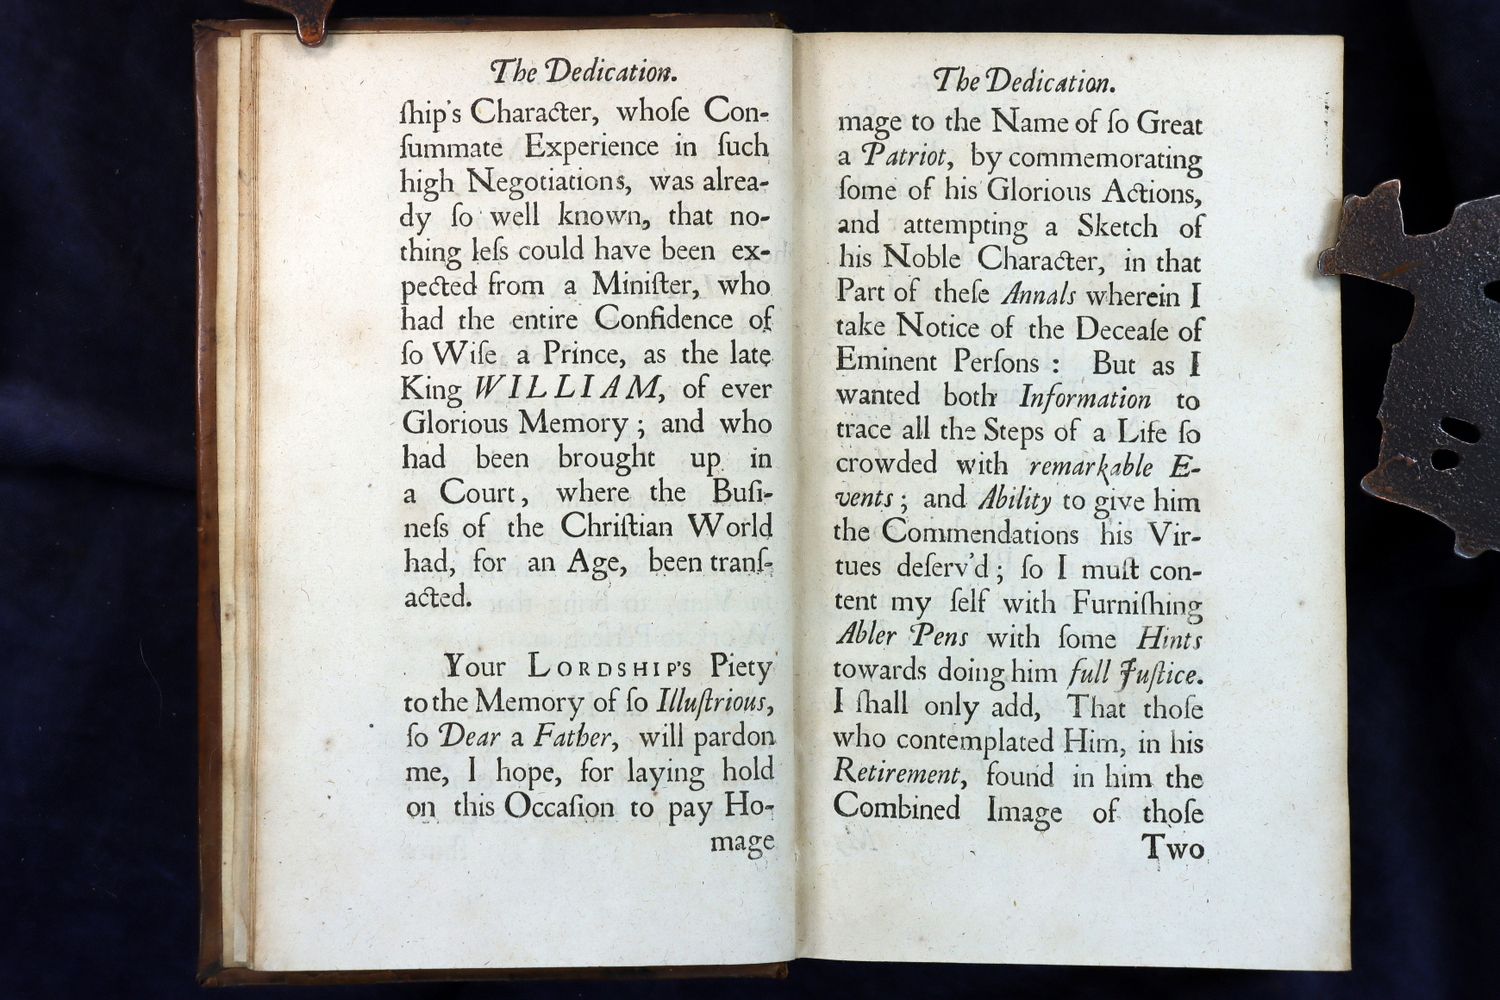 The Dedication.
ſhip's Character, whoſe Con-
ſummate Experience in ſuch
high Negotiations, was alrea-
dy ſo well known, that no-
thing leſs could have been ex-
pected from a Miniſter, who
had the entire Confidence of
ſo Wiſe a Prince, as the late
King WILLIAM, of ever
Glorious Memory; and who
had been brought up in
a Court, where the Buſi-
neſs of the Chriſtian World
had, for an Age, been tranſ-
acted.
Your LORDSHIP'S Piety
to the Memory of ſo Illuſtrious,
ſo Dear a Father, will pardon
me, I hope, for laying hold
on this Occaſion to pay Ho-
mage
The Dedication.
mage to the Name of ſo Great
a Patriot, by commemorating
ſome of his Glorious Actions,
and attempting a Sketch of
his Noble Character, in that
Part of theſe Annals wherein I
take Notice of the Deceaſe of
Eminent Perſons: But as I
wanted both Information to
trace all the Steps of a Life ſo
crowded with remarkable E-
vents; and Ability to give him
the Commendations his Vir-
tues deſerv'd; ſo I muſt con-
tent my ſelf with Furniſhing
Abler Pens with ſome Hints
towards doing him full Juſtice.
I ſhall only add, That thoſe
who contemplated Him, in his
Retirement, found in him the
Combined Image of thoſe
Two